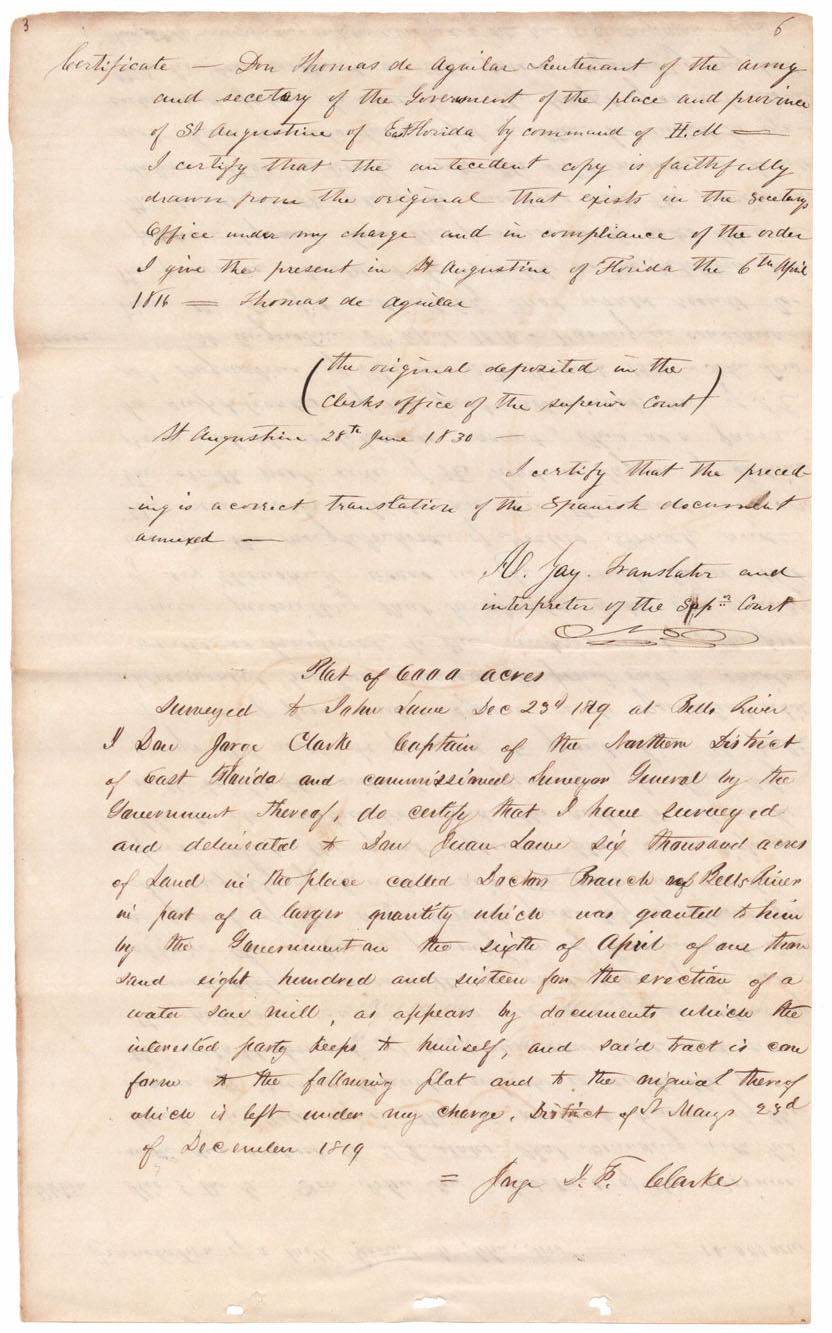 3
6
Certificate — Don Thomas de Aguilar Lieutenant of the army
and secetary of the Government of the place and province
of St Augustine of East Florida by command of H. M =
I certify that the antecedent copy is faithfully
drawn from the original that exists in the Secetarys
Office under my charge and in compliance of the order
I give the present in St Augustine of Florida the 6th April
1816 = Thomas de Aguilar
(the original deposited in the
Clerks office of the superior Court)
St Augustine 28th June 1830 —
I certify that the preced-
-ing is a correct translation of the Spanish document
annexed —
Jay. Translator and
interpreter of the Supr Court
Plat of 6000 acres
Surveyed to John Lowe Dec 23d 1819 at Bells River
I Don Jorge Clarke Captain of the Northern District
of East Florida and commissioned Surveyor General by the
Government Thereof, do certify that I have surveyed
and deliniated to Don Juan Lowe six thousand acres
of Land in the place called Doctors Branch of Bells River
in part of a larger quantity which was granted to him
by the Government on the sixth of April of one thou
sand eight hundred and sixteen for the erection of a
water saw mill, as appears by documents which the
interested party keeps to himself, and said tract is con
form to the following plat and to the original thereof
which is left under my charge. District of St Marys 23d
of December 1819
= Jorge J. F. Clarke